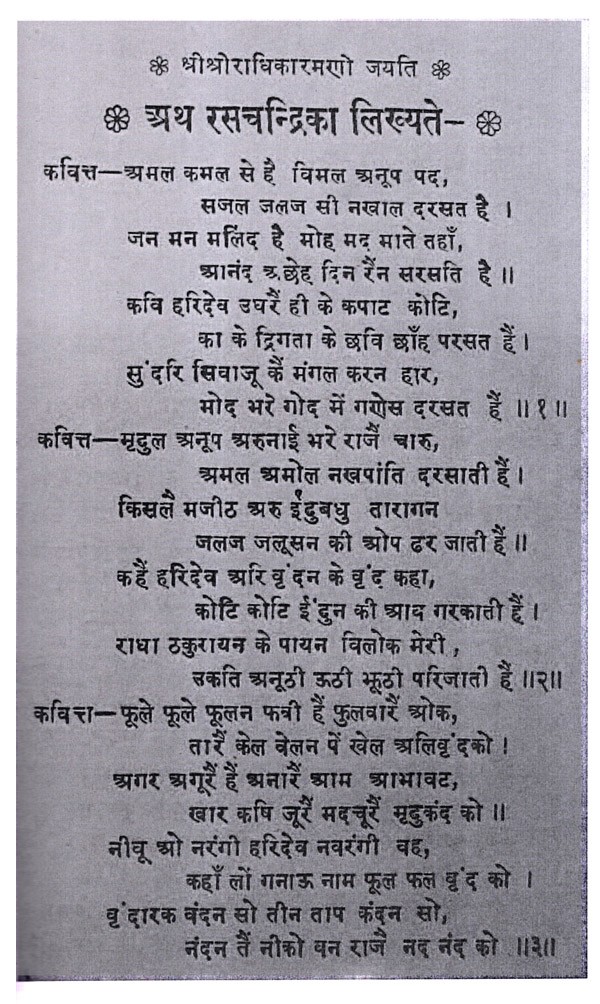 ❀ श्रीश्रोराधिकारमणो जयति ❀
❀ अथ रसचन्द्रिका लिख्यते– ❀
कवित्त—अमल कमल से है विमल अनूप पद,
सजल जलज सी नखाल दरसत है ।
जन मन मलिंद है मोह मद माते तहाँ,
आनंद अछेह दिन रैंन सरसति है ॥
कवि हरिदेव उघरैं ही के कपाट कोटि,
का के द्रिगता के छवि छाँह परसत हैं ।
सुंदरि सिवाजू कैं मंगल करन हार,
मोद भरे गोद में गणेस दरसत हैं ॥१॥
कवित्त—मृदुल अनूप अरुनाई भरे राजैं चारु,
अमल अमोल नखपांति दरसाती हैं ।
किसलै मजीठ अरु ईंदुबधु तारागन
जलज जलूसन की ओप ढर जाती हैं ॥
कहैं हरिदेव अरि वृंदन के वृंद कहा,
कोटि कोटि ईंदुन की आव गरकाती हैं ।
राधा ठकुरायन के पायन विलोक मेरी,
उकति अनूठी ऊठी झूठी परिजाती हैं ॥२॥
कवित्त—फूले फूले फूलन फवी हैं फुलवारैं ओक,
तारैं केल वेलन पें खेल अलिवृंदको ।
अगर अगूरैं हैं अनारैं आम आभावट,
खार कषि जूरैं मदचूरैं मृदुकंद को ॥
नीवू ओ नरंगी हरिदेव नवरंगी वह,
कहाँ लों गनाऊ नाम फूल फल वृंद को ।
वृंदारक वंदन सो तीन ताप कंदन सो,
नंदन तैं नीको वन राजै नद नंद को ॥३॥